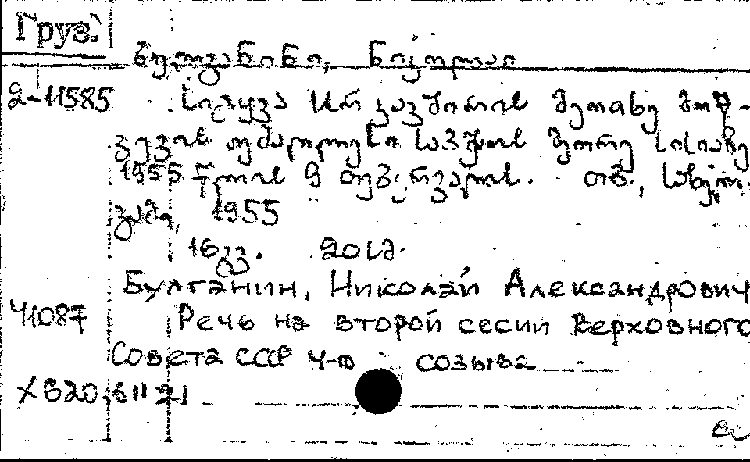 Груз.
ბულგანინი, ნიკოლაი
2-11585 სიტყვა სსრ კავშირის მეოთხე მოწ-
ვევის უმაღლესი საბჭოს მეორე სესიაზე
1955 წლის 9 თებერვალს. თბ., სახელ-
გამი, 1955
16გვ. 20სმ.
Булганин, Николай Александрович
41087 Речь на второй сессии Верховного
Совета СССР 4-го созыва